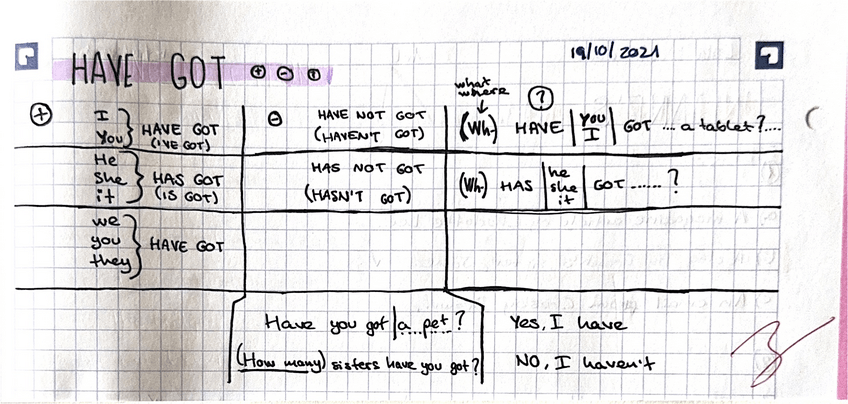 19/10/2021
HAVE GOT + - ?
what
where
↓
?
+
I
You
HAVE GOT
(I'VE GOT)
-
HAVE NOT GOT
(HAVEN'T GOT)
(Wh-) HAVE | YOU | GOT .... a tablet?....
I
He
she
it
HAS GOT
(IS GOT)
HAS NOT GOT
(HASN'T GOT)
(Wh-) HAS | he | GOT ...... ?
she
it
we
you
they
HAVE GOT
Have you got | a pet?
Yes, I have
(How many) sisters have you got?
NO, I haven't